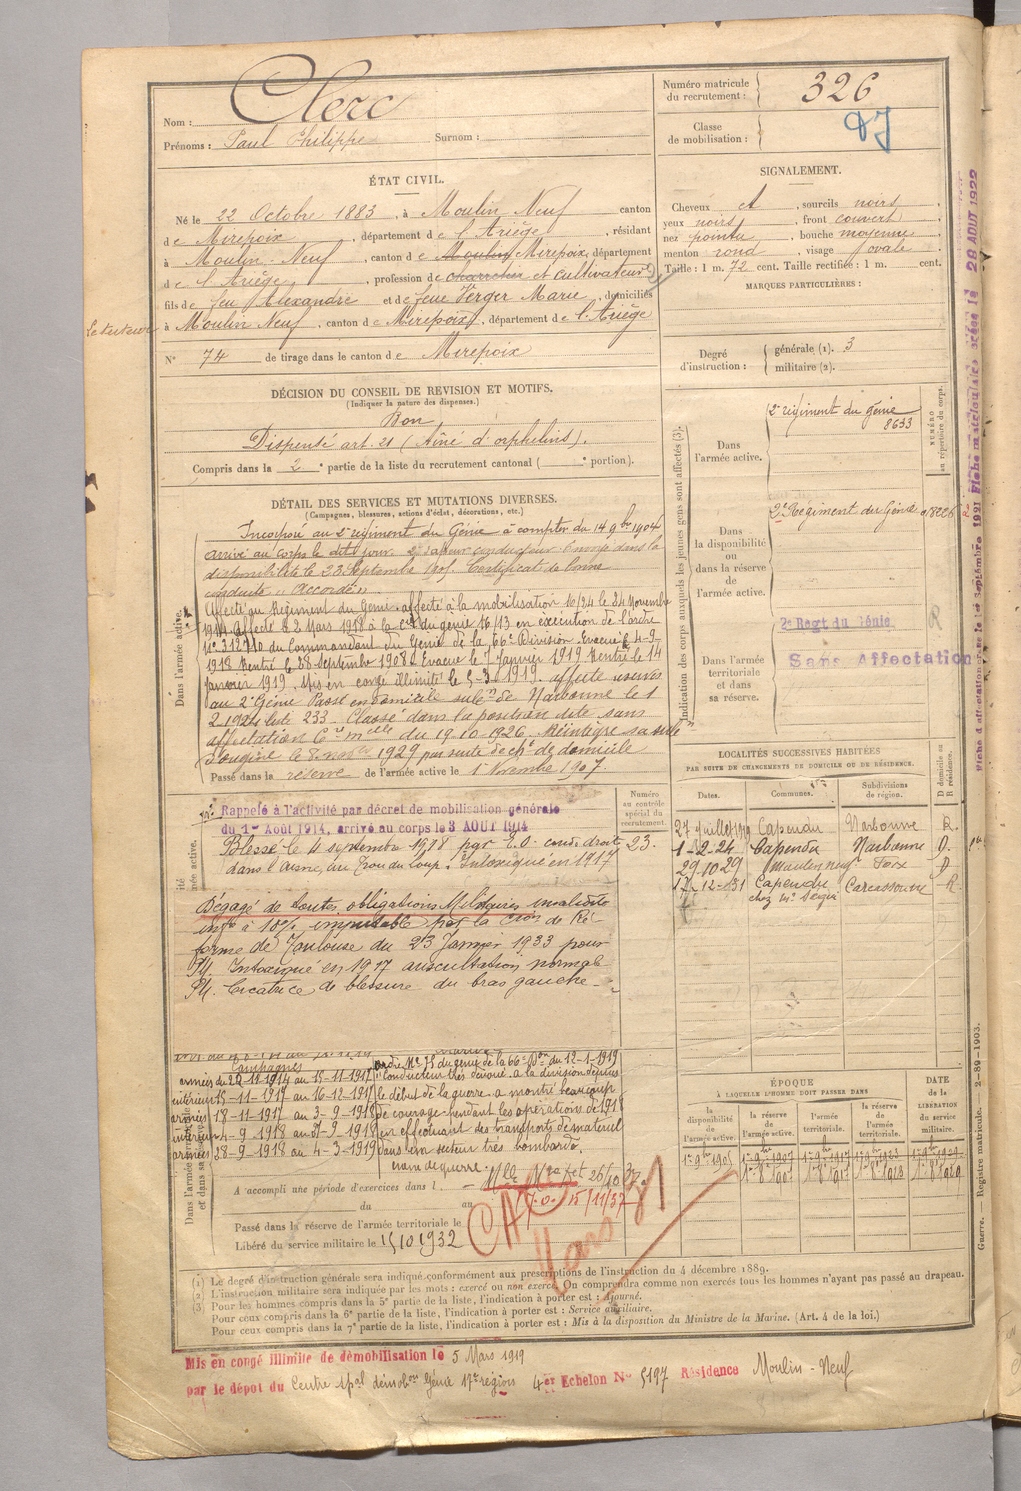 Nom : Clerc
Prénoms : Paul Philippe Surnom :
Numéro matricule du recrutement : 326
Classe de mobilisation :
ÉTAT CIVIL.
Né le 22 Octobre 1883, à Moulin Neuf canton
de Mirepoix, département de l'Ariège, résidant
à Moulin-Neuf, canton de Moulin Mirepoix, département
de l'Ariège, profession de charretier et cultivateur
fils de feu Alexandre et de feue Verger Marie, domiciliés
Le tuteur
à Moulin Neuf, canton de Mirepoix, département de l'Ariège
N° 74 de tirage dans le canton de Mirepoix
SIGNALEMENT.
Cheveux et, sourcils noirs,
yeux noirs, front couvert,
nez pointu, bouche moyenne
menton rond, visage ovale
Taille : 1 m. 72 cent. Taille rectifiée : 1 m. cent.
MARQUES PARTICULIÈRES :
Degré d'instruction : générale (1). 3
militaire (2).
DÉCISION DU CONSEIL DE REVISION ET MOTIFS.
(Indiquer la nature des dispenses.)
Bon
Dispensé art. 21 (Aîné d'orphelins).
Compris dans la 2e partie de la liste du recrutement cantonal ( e portion).
DÉTAIL DES SERVICES ET MUTATIONS DIVERSES.
(Campagnes, blessures, actions d'éclat, décorations, etc.)
Dans l'armée active.
Incorporé au 2e régiment du Génie à compter du 14 9bre 1904
arrivé au corps le dit jour 2e sapeur conducteur Envoyé dans la
disponibilité le 23 Septembre 1905. Certificat de bonne
conduite "Accordé"
Affecté au Régiment du Génie affecté à la mobilisation 16/24 le 24 Novembre
1914 Affecté le 2 Mars 1918 à la Cie du génie 16/13 en exécution de l'ordre
du Commandant du Génie de la 66e Division Evacué le 4-9-
1918 Rentré le 28 Septembre 1908 Evacué le 7 Janvier 1919 Rentré le 14
janvier 1919. Mis en congé illimité le 5-3-1919. affecté
au 2e Génie Passé en domicile de Narbonne le 1
2 1924 liste 233 - Classé dans la position dite sans
affectation du 19-10-1926. Réintègre sa
d'origine le 1929 par suite de cht de domicile
Passé dans la réserve de l'armée active le 1er Novembre 1907.
Rappelé à l'activité par décret de mobilisation générale
du 1er Août 1914, arrivé au corps le 3 AOUT 1914
Blessé le 4 septembre 1918 par E.O. coude droit
dans l'Aisne, au Trou du Loup. Intoxiqué en 1917
Dégagé de toutes obligations Militaires invalidité
infre à 10% imputable par la Con de Ré
forme de Toulouse du 23 Janvier 1933 pour
Intoxiqué en 1917 auscultation normale
Cicatrice de blessure du bras gauche
Numéro au contrôle spécial du recrutement.
23.
Campagnes
armées du 24-11-1914 au 15-11-1917
intérieur 15-11-1917 au 16-12-1917
armées 18-11-1917 au 3-9-1918
intérieur 4-9-1918 au 27-9-1918
armées 28-9-1918 au 4-3-1919
ordre No 75 du génie de la 66e Don du 12-1-1919
"Conducteur très dévoué à la division depuis
le début de la guerre a montré beaucoup
de courage pendant les opérations de 1918
en effectuant des transports de matériel
dans un secteur très bombardé.
croix de guerre.
A accompli une période d'exercices dans l
du au
Passé dans la réserve de l'armée territoriale le
Libéré du service militaire le 15 10 1932
15/11/37
Indication des corps auxquels les jeunes gens sont affectés (3).
Dans l'armée active. 2e régiment du génie
8633
NUMÉRO au répertoire du corps.
Dans la disponibilité ou dans la réserve de l'armée active. 2e Régiment du Génie
Dans l'armée territoriale et dans sa réserve. 2e Régt du Génie
Sans Affectation
LOCALITÉS SUCCESSIVES HABITÉES
PAR SUITE DE CHANGEMENTS DE DOMICILE OU DE RÉSIDENCE.
Dates. Communes. Subdivisions de région. D domicile ou R résidence.
27 juillet 1919 Capendu Narbonne R.
1-2-24 Capendu Narbonne D.
29.10 29 Moulin neuf Foix D
17-12-31 Capendu Carcassonne R.
chez Mr
ÉPOQUE
À LAQUELLE L'HOMME DOIT PASSER DANS
la disponibilité de l'armée active. la réserve de l'armée active. l'armée territoriale. la réserve de l'armée territoriale.
DATE de la LIBÉRATION du service militaire.
1er 9bre 1905 1er 9bre 1907 1er 9bre 1917
Guerre. — Registre matricule. 2-89-1903.
(1) Le degré d'instruction générale sera indiqué conformément aux prescriptions de l'instruction du 4 décembre 1889.
(2) L'instruction militaire sera indiquée par les mots : exercé ou non exercé. On comprendra comme non exercés tous les hommes n'ayant pas passé au drapeau.
(3) Pour les hommes compris dans la 5e partie de la liste, l'indication à porter est : Ajourné.
Pour ceux compris dans la 6e partie de la liste, l'indication à porter est : Service auxiliaire.
Pour ceux compris dans la 7e partie de la liste, l'indication à porter est : Mis à la disposition du Ministre de la Marine. (Art. 4 de la loi.)
Mis en congé illimité de démobilisation le 5 Mars 1919
par le dépôt du Centre spal démobon Génie 17e région 4er Echelon No 5197 Résidence Moulin-Neuf